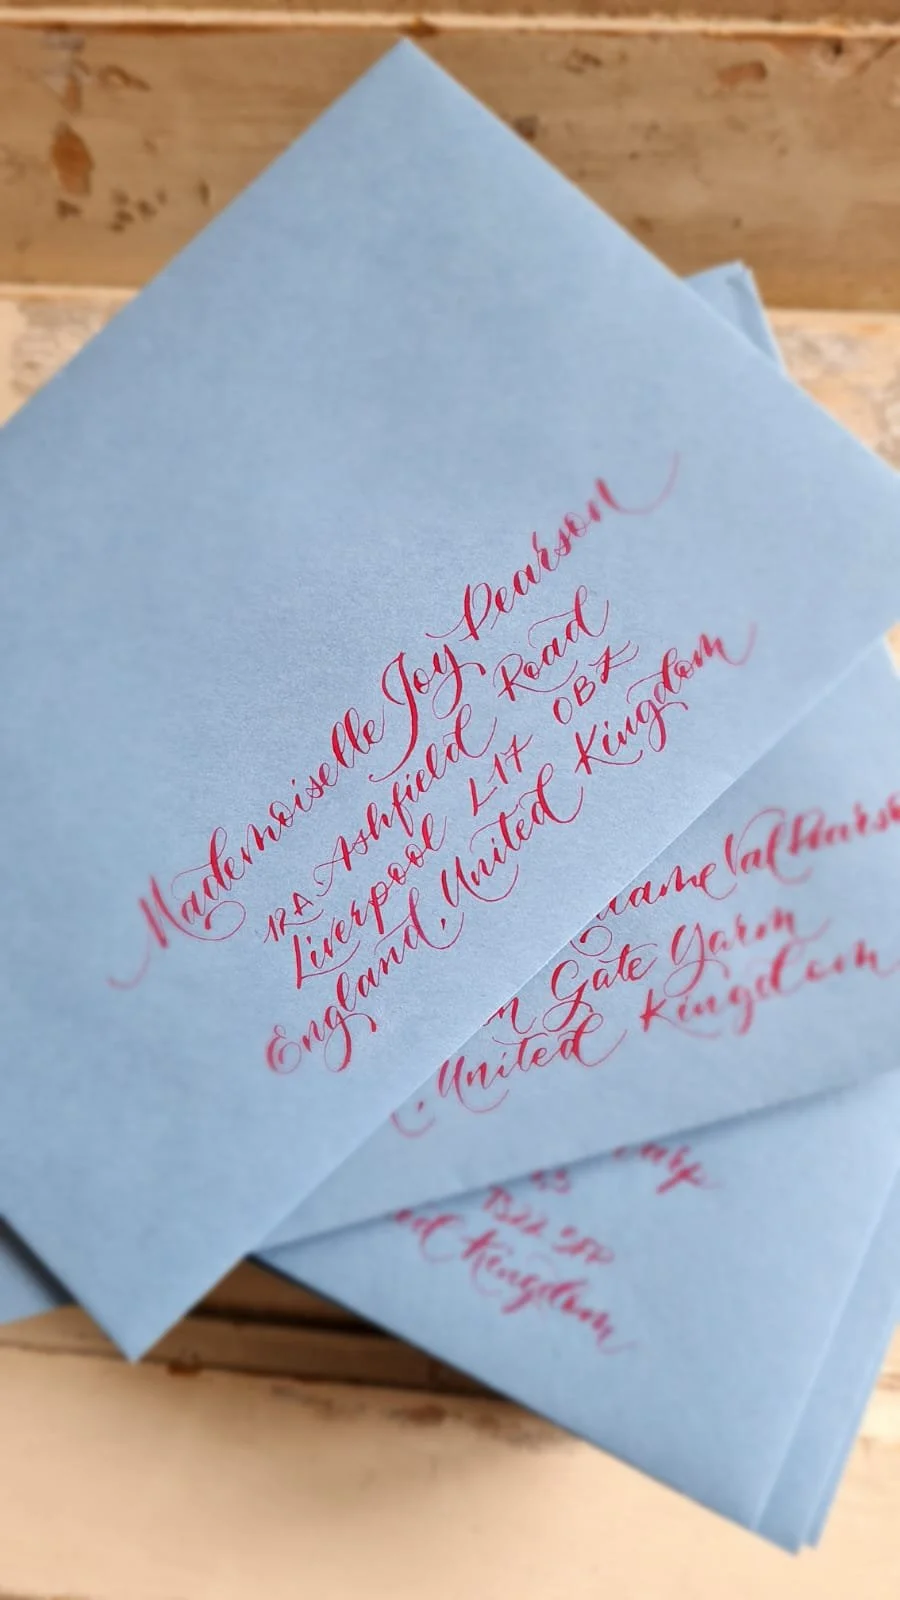 Mademoiselle Joy Pearson
12A Ashfield Road
Liverpool L17 0BZ
England, United Kingdom
Val Pearso
Gate Yarm
United Kingdom
Kingdom